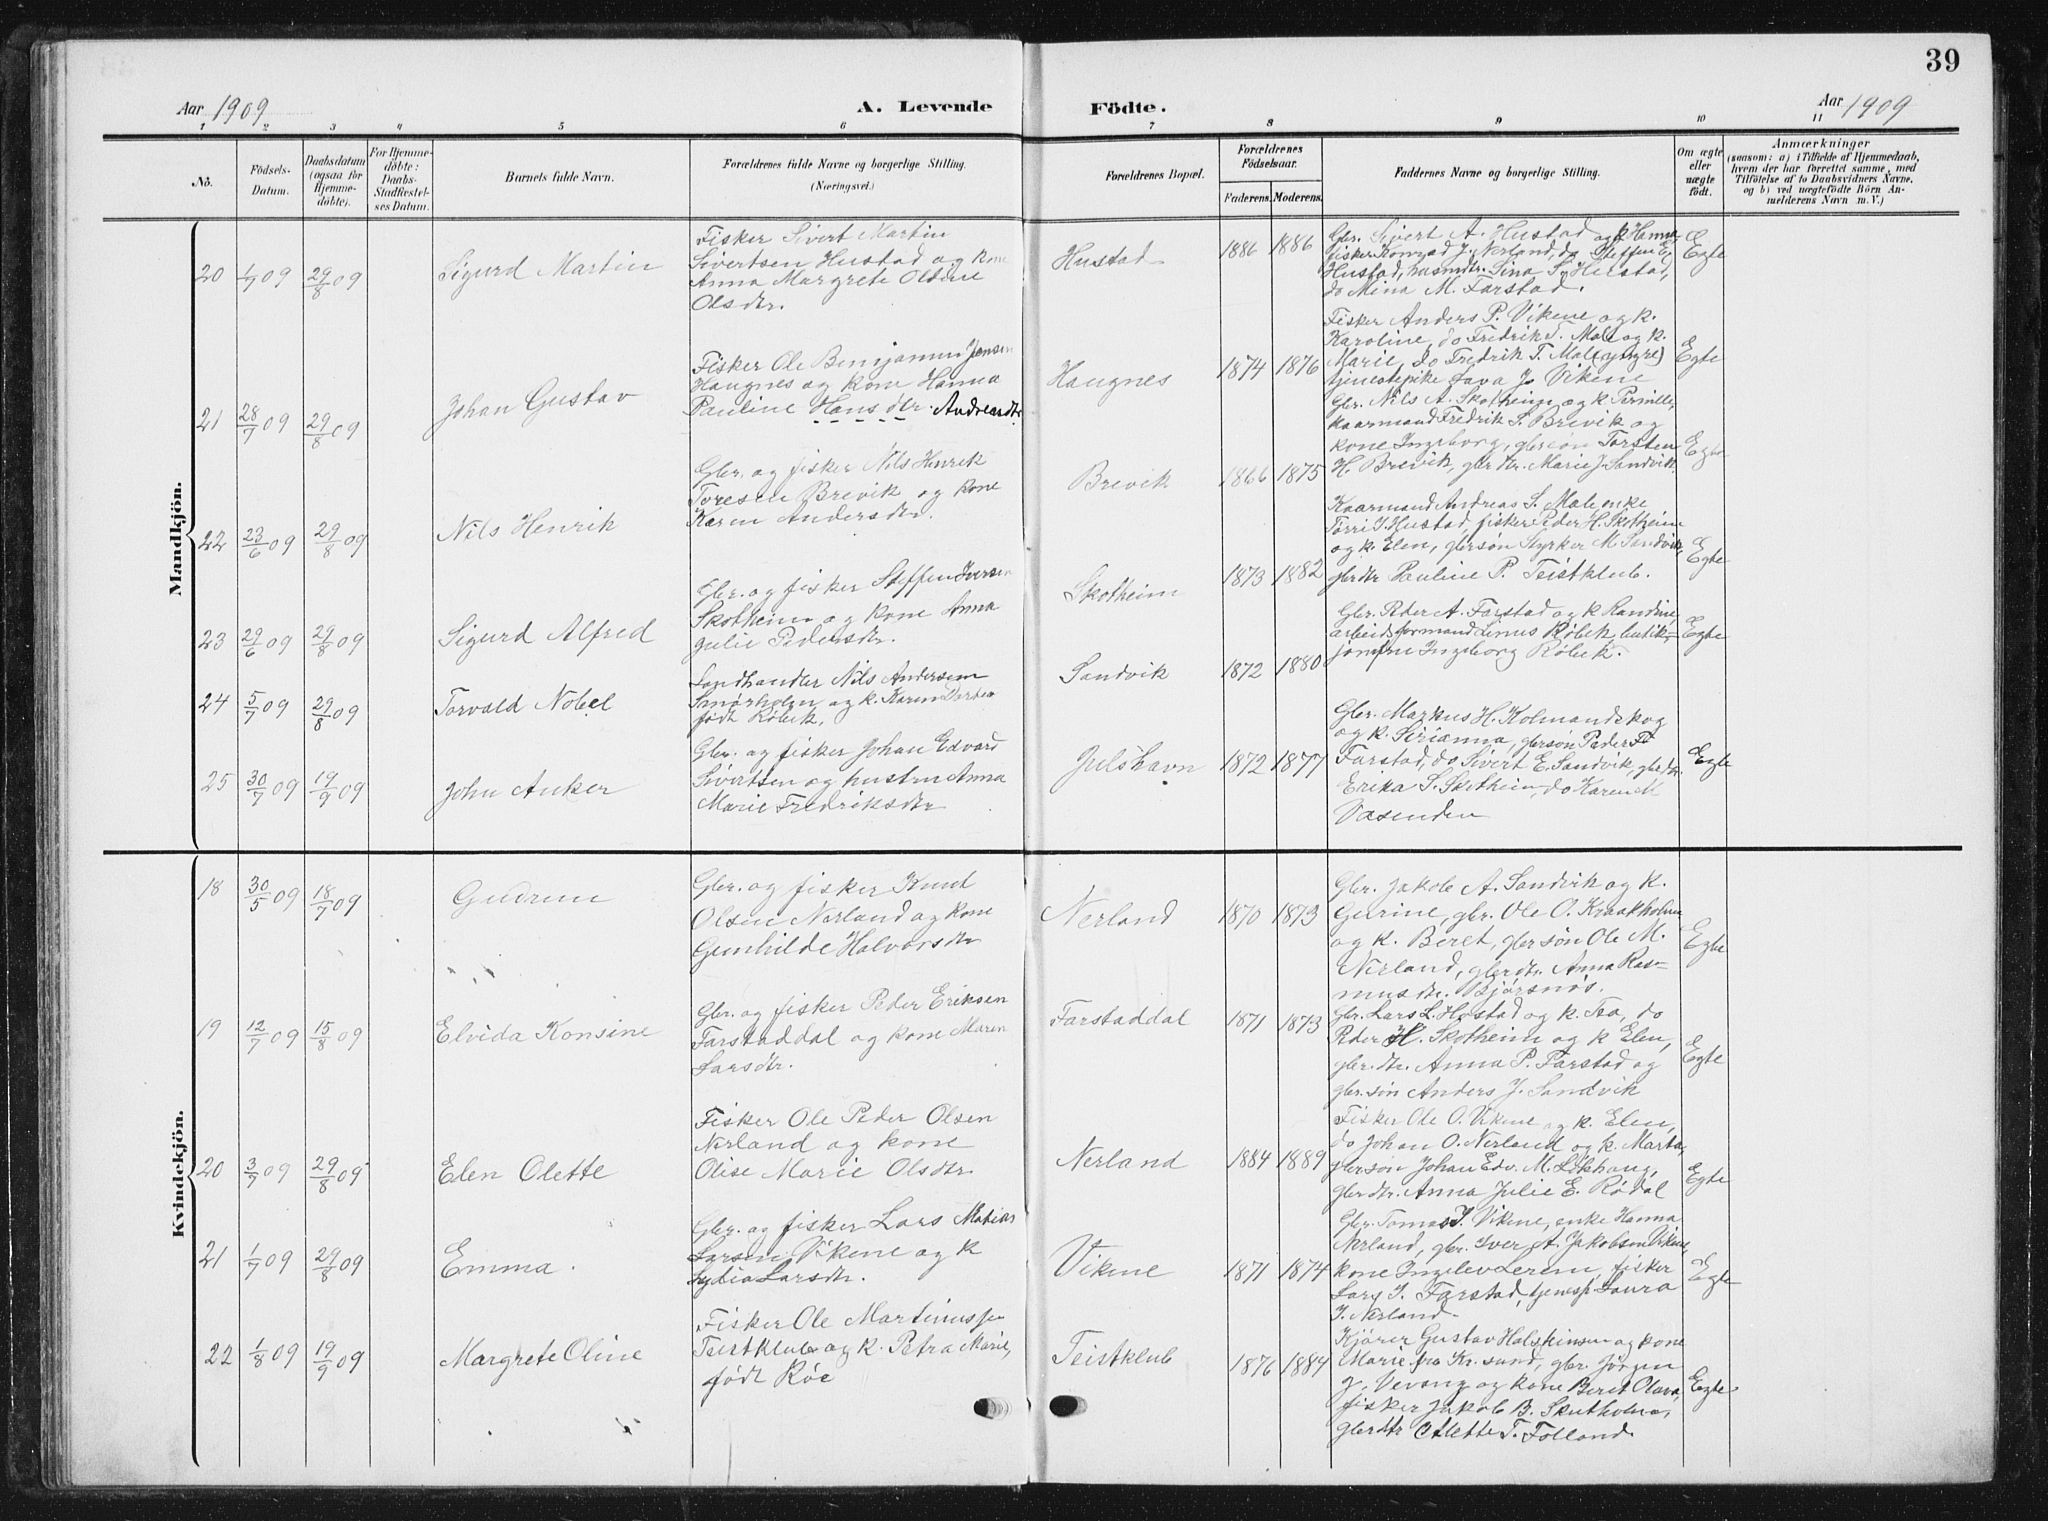 39
Aar 1909
A. Levende Födte.
Aar 1909
1 2 3 4 5 6 7 8 9 10 11
No.
Födsels-Datum.
Daabsdatum (ogsaa for Hjemme-döbte).
For Hjemme-döbte: Daabs-Stadfæstel-ses Datum.
Barnets fulde Navn.
Forældrenes fulde Navne og borgerlige Stilling. (Næringsvei.)
Forældrenes Bopæl.
Forældrenes Födselsaar.
Faderens. Moderens.
Faddernes Navne og borgerlige Stilling.
Om ægte eller uægte födt.
Anmærkninger
(saasom: a) i Tilfælde af Hjemmedaab, hvem der har forrettet samme, med Tilföielse af to Daabsvidners Navne, og b) ved uægtefödte Börn An-melderens Navn m. V.)
Mandkjön.
20 1/7 09 29/8 09 Sigurd Martin
Fisker Sivert Martin
Sivertsen Hustad og kone
Anna Margrete Olsine
Olsdtr.
Hustad 1886 1886
Gbr. Sivert A. Hustad og k. Hanna,
fisker Konrad J. Nerland, do Steffen E.
Hustad, husmdtr. Sina S. Hustad,
do Mina M. Farstad.
Egte
21 28/7 09 29/8 09 Johan Gustav
Fisker Ole Benjamin Jensen
Haugnes og kone Hanna
Pauline Hansdtr. Andreasdtr.
Haugnes 1874 1876
Fisker Anders P. Vikene og k.
Karoline, do Fredrik T. Male og k.
Marie, do Fredrik T. Male (yngre)
tjenestepike Lava J. Vikene
Egte
22 23/6 09 29/8 09 Nils Henrik
Gbr. og fisker Nils Henrik
Toresen Brevik og kone
Karen Andersdtr.
Brevik 1866 1875
Gbr. Nils A. Skotheim og k. Pernille,
kaarmand Fredrik S. Brevik og
kone Ingeborg, gbrsøn Torsten
H. Brevik, gbrdtr. Marie J. Sandvik
Egte
23 29/6 09 29/8 09 Sigurd Alfred
Gbr. og fisker Steffen Iversen
Skotheim og kone Anna
Julie Pedersdtr.
Skotheim 1873 1882
Kaarmand Andreas S. Male, enke
Torri I. Hustad, fisker Peder H. Skotheim
og k. Elen, gbrsøn Styrker M. Sandvik,
gbrdtr Pauline P. Teistklub.
Egte
24 5/7 09 29/8 09 Torvald Nobel
Landhandler Nils Andersen
Sanørholen og k. Karen Dortea
født Røbek.
Sandvik 1872 1880
Gbr. Peder A. Farstad og k Randine,
arbeidsformand Linus Røbek, butik-
jomfru Ingeborg Røbek.
Egte
25 30/7 09 19/9 09 John Anker
Gbr. og fisker Johan Edvard
Sivertsen og hustru Anna
Marie Fredriksdtr
Julshavn 1872 1877
Gbr. Markus H. Kolmandskog
og k. Sirianna, gbrsøn Peder
Farstad, do Sivert E. Sandvik, gbrdtr.
Erika S. Skotheim, do Karen M
Vasenden
Egte
Kvindekjön.
18 30/5 09 18/7 09 Gudrun
Gbr. og fisker Knut
Olsen Nerland og kone
Gunhilde Halvorsdtr
Nerland 1870 1873
Gbr. Jakob A. Sandvik og k.
Gurine, gbr. Ole O. Kraakholm
og k. Beret, gbrsøn Ole M.
Nerland, gbrdtr. Anna Ras-
musdtr. Bjørsnøs.
Egte
19 12/7 09 15/8 09 Elvida Konsine
Gbr. og fisker Peder Eriksen
Farstaddal og kone Maren
Larsdtr.
Farstaddal 1871 1873
Gbr. Lars L. Hostad og k. Tea, do
Peder H. Skotheim og k Elen,
gbr.dtr. Anna P. Farstad og
gbr.søn Anders J. Sandvik
Egte
20 3/7 09 29/8 09 Elen Olette
Fisker Ole Peder Olsen
Nerland og kone
Olise Marie Olsdtr
Nerland 1884 1889
Fisker Ole O. Vikene og k. Elen,
do Johan O. Nerland og k. Marta,
gbrsøn Johan Edv. M. Løkhaug,
gbrdtr. Anna Julie E. Rødal
Egte
21 1/7 09 29/8 09 Emma.
Gbr. og fisker Lars Matias
Larsen Vikene og k
Lydia Larsdtr.
Vikene 1871 1874
Gbr. Tomas I. Vikene, enke Hanna
Nerland, gbr. Iver A. Jakobsen Vikene,
kone Ingelev Lerem, fisker
Lars I. Farstad, tjenesp. Laura
I. Nerland.
Egte
22 1/8 09 19/9 09 Margrete Oline
Fisker Ole Martinussen
Teistklub og k. Petra Marie,
født Röe
Teistklub 1876 1884
Kjører Gustav Halsteinsen og kone
Marie fra Kr.sund, gbr. Jørgen
J. Vevang og kone Beret Olava,
fisker Jakob B. Skutholm,
gbrdtr Olette T. Folland.
Egte